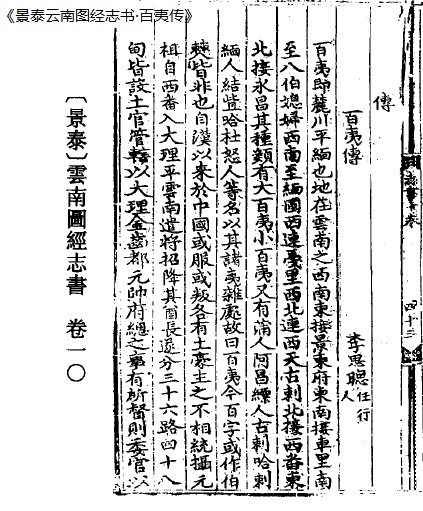 《景泰云南图经志书·百夷传》
傳
百夷傳 李思聰 任行人
百夷即麓川平緬也地在雲南之西南東接景東府東南接車里南
至八伯媳婦西南至緬國西連戞里西北連西天古剌北接西番東
北接永昌其種類有大百夷小百夷又有蒲人阿昌縹人古剌哈剌
緬人結哈杜怒人等名以其諸夷雜處故曰百夷今百字或作伯
僰皆非也自漢以來於中國或服或叛各有土豪主之不相統攝元
祖自西番入大理平雲南遣將招降其酋長遂分三十六路四十八
甸皆設土官管轄以大理金齒都元帥府總之事有所督則委官以
四十三
〔景泰〕雲南圖經志書 卷一〇